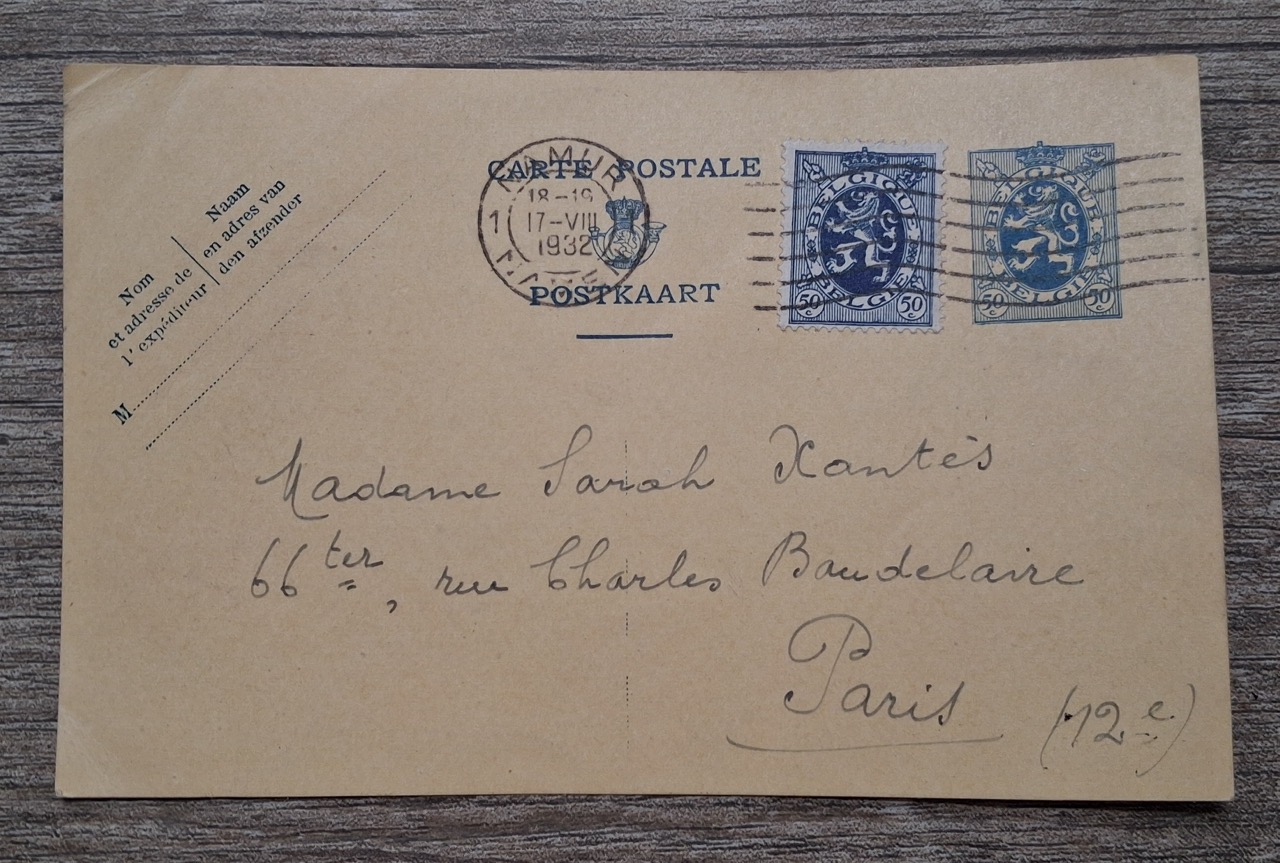 CARTE POSTALE
POSTKAART
NAMUR
1
18-19
17-VIII
1932
BELGIQUE
BELGIË
50 c 50 c
BELGIQUE
BELGIË
50 c 50 c
Nom
et adresse de
l'expéditeur
Naam
en adres van
den afzender
M
Madame Sarah Xantès
66 ter, rue Charles Baudelaire
Paris (12e)